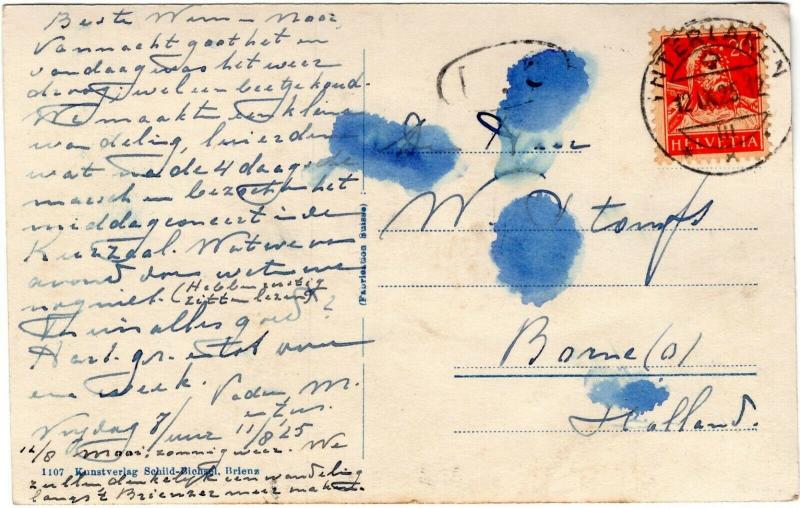 Beste Wim – Noor
Vannacht goot het en
vandaag was het weer
droog, wel een beetje koud.
We maakten een kleine
wandeling, luierden
wat na de 4 daagse
marsch en bezochten het
middagconcert in de
Kurzaal. Wat we van
avond doen, weten we
nog niet. (Hebben rustig
zitten lezen)
Thuis alles goed?
Hart. gr. en tot over
een week.
Vader, M.
en zus.
Vrijdag 7/ uur 11/8 25
12/8 Mooi, zonnig weer. We
zullen denkelijk een wandeling
langs 't Brienzer meer maken.
1107 Kunstverlag Schild-Bichsel, Brienz
(Fabrication Suisse)
INTERLAKEN
12.IX.25
III
20
HELVETIA
De Heer
W. Stomps
Borne (O)
Holland.